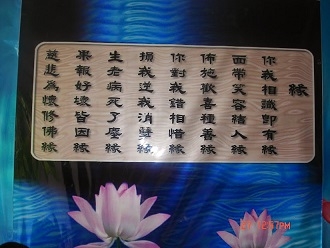 緣
你我相識即有緣
面帶笑容結人緣
佈施歡喜種善緣
你對我錯相惜緣
損我逆我消孽緣
生老病死了塵緣
果報好壞皆因緣
慈悲為懷修佛緣